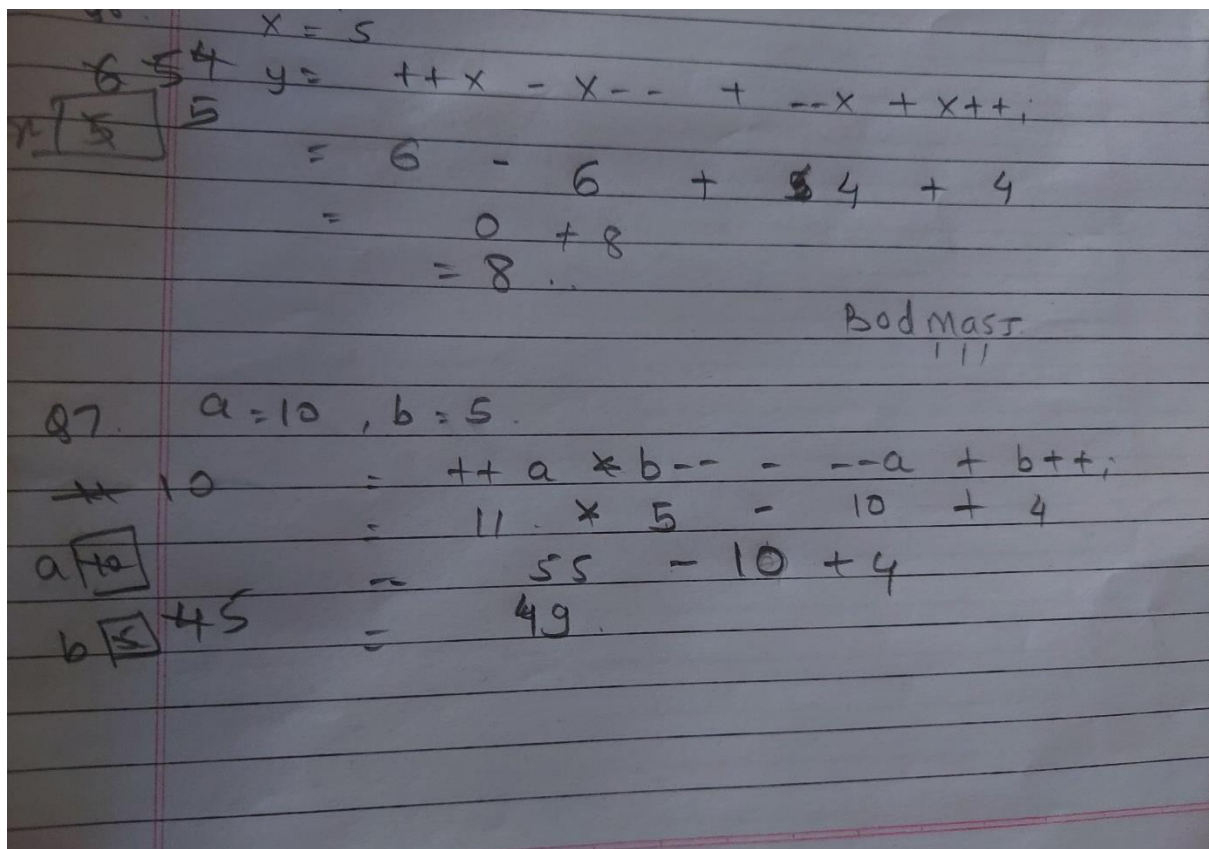 x = 5
6 5 4 y = ++x - x-- + --x + x++;
x 5 5
= 6 - 6 + 4 + 4
= 0 + 8
= 8 ..
Bodmas
Q7. a = 10, b = 5.
11 10 = ++a * b-- - --a + b++;
= 11 * 5 - 10 + 4
a 10 = 55 - 10 + 4
b 5 4 5 = 49.